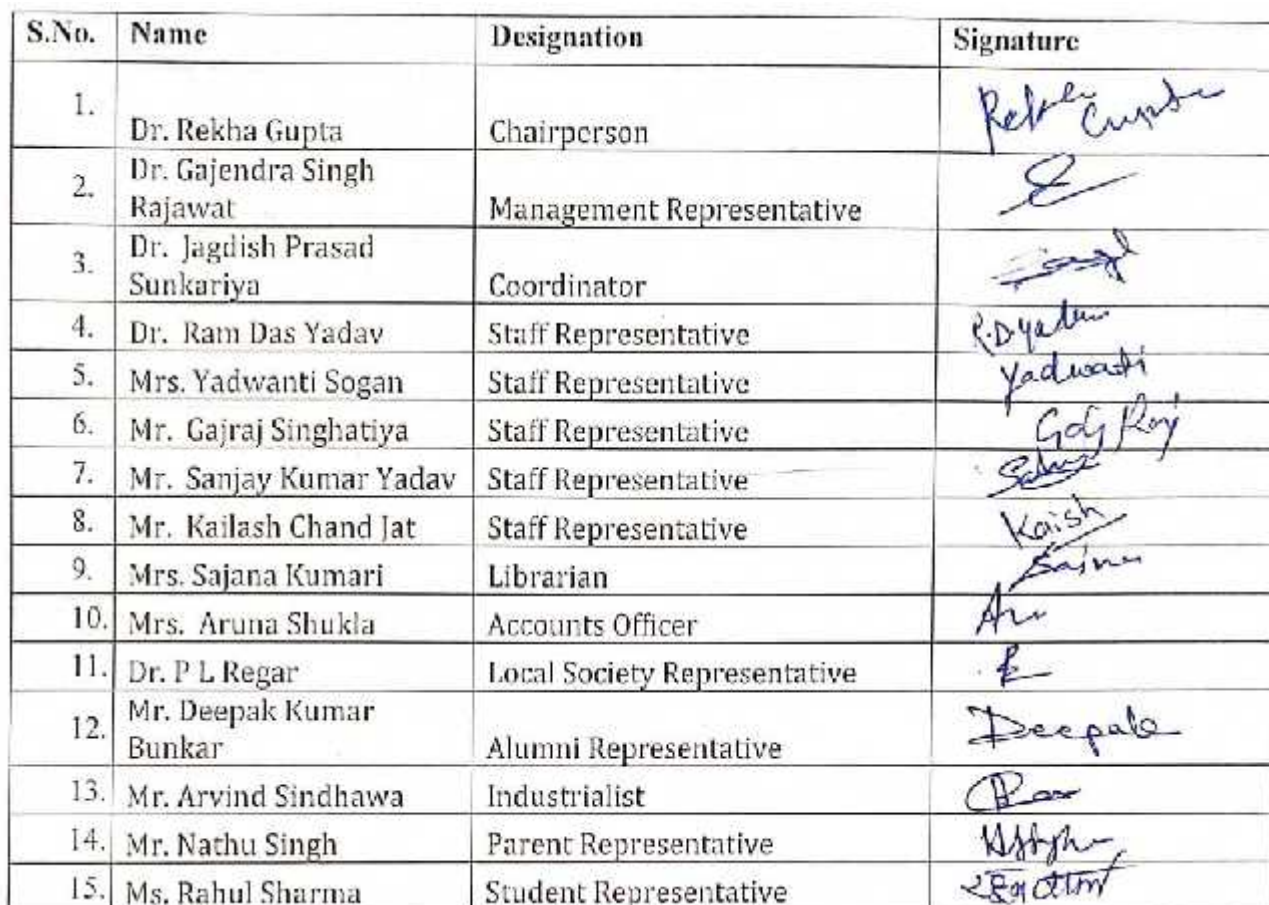 S.No. Name Designation Signature
1. Dr. Rekha Gupta Chairperson Rekha Gupta
2. Dr. Gajendra Singh
Rajawat Management Representative
3. Dr. Jagdish Prasad
Sunkariya Coordinator
4. Dr. Ram Das Yadav Staff Representative R.D.Yadav
5. Mrs. Yadwanti Sogan Staff Representative Yadwanti
6. Mr. Gajraj Singhatiya Staff Representative Gaj Raj
7. Mr. Sanjay Kumar Yadav Staff Representative
8. Mr. Kailash Chand Jat Staff Representative Kaish
9. Mrs. Sajana Kumari Librarian
10. Mrs. Aruna Shukla Accounts Officer
11. Dr. P L Regar Local Society Representative
12. Mr. Deepak Kumar
Bunkar Alumni Representative Deepak
13. Mr. Arvind Sindhawa Industrialist
14. Mr. Nathu Singh Parent Representative
15. Ms. Rahul Sharma Student Representative